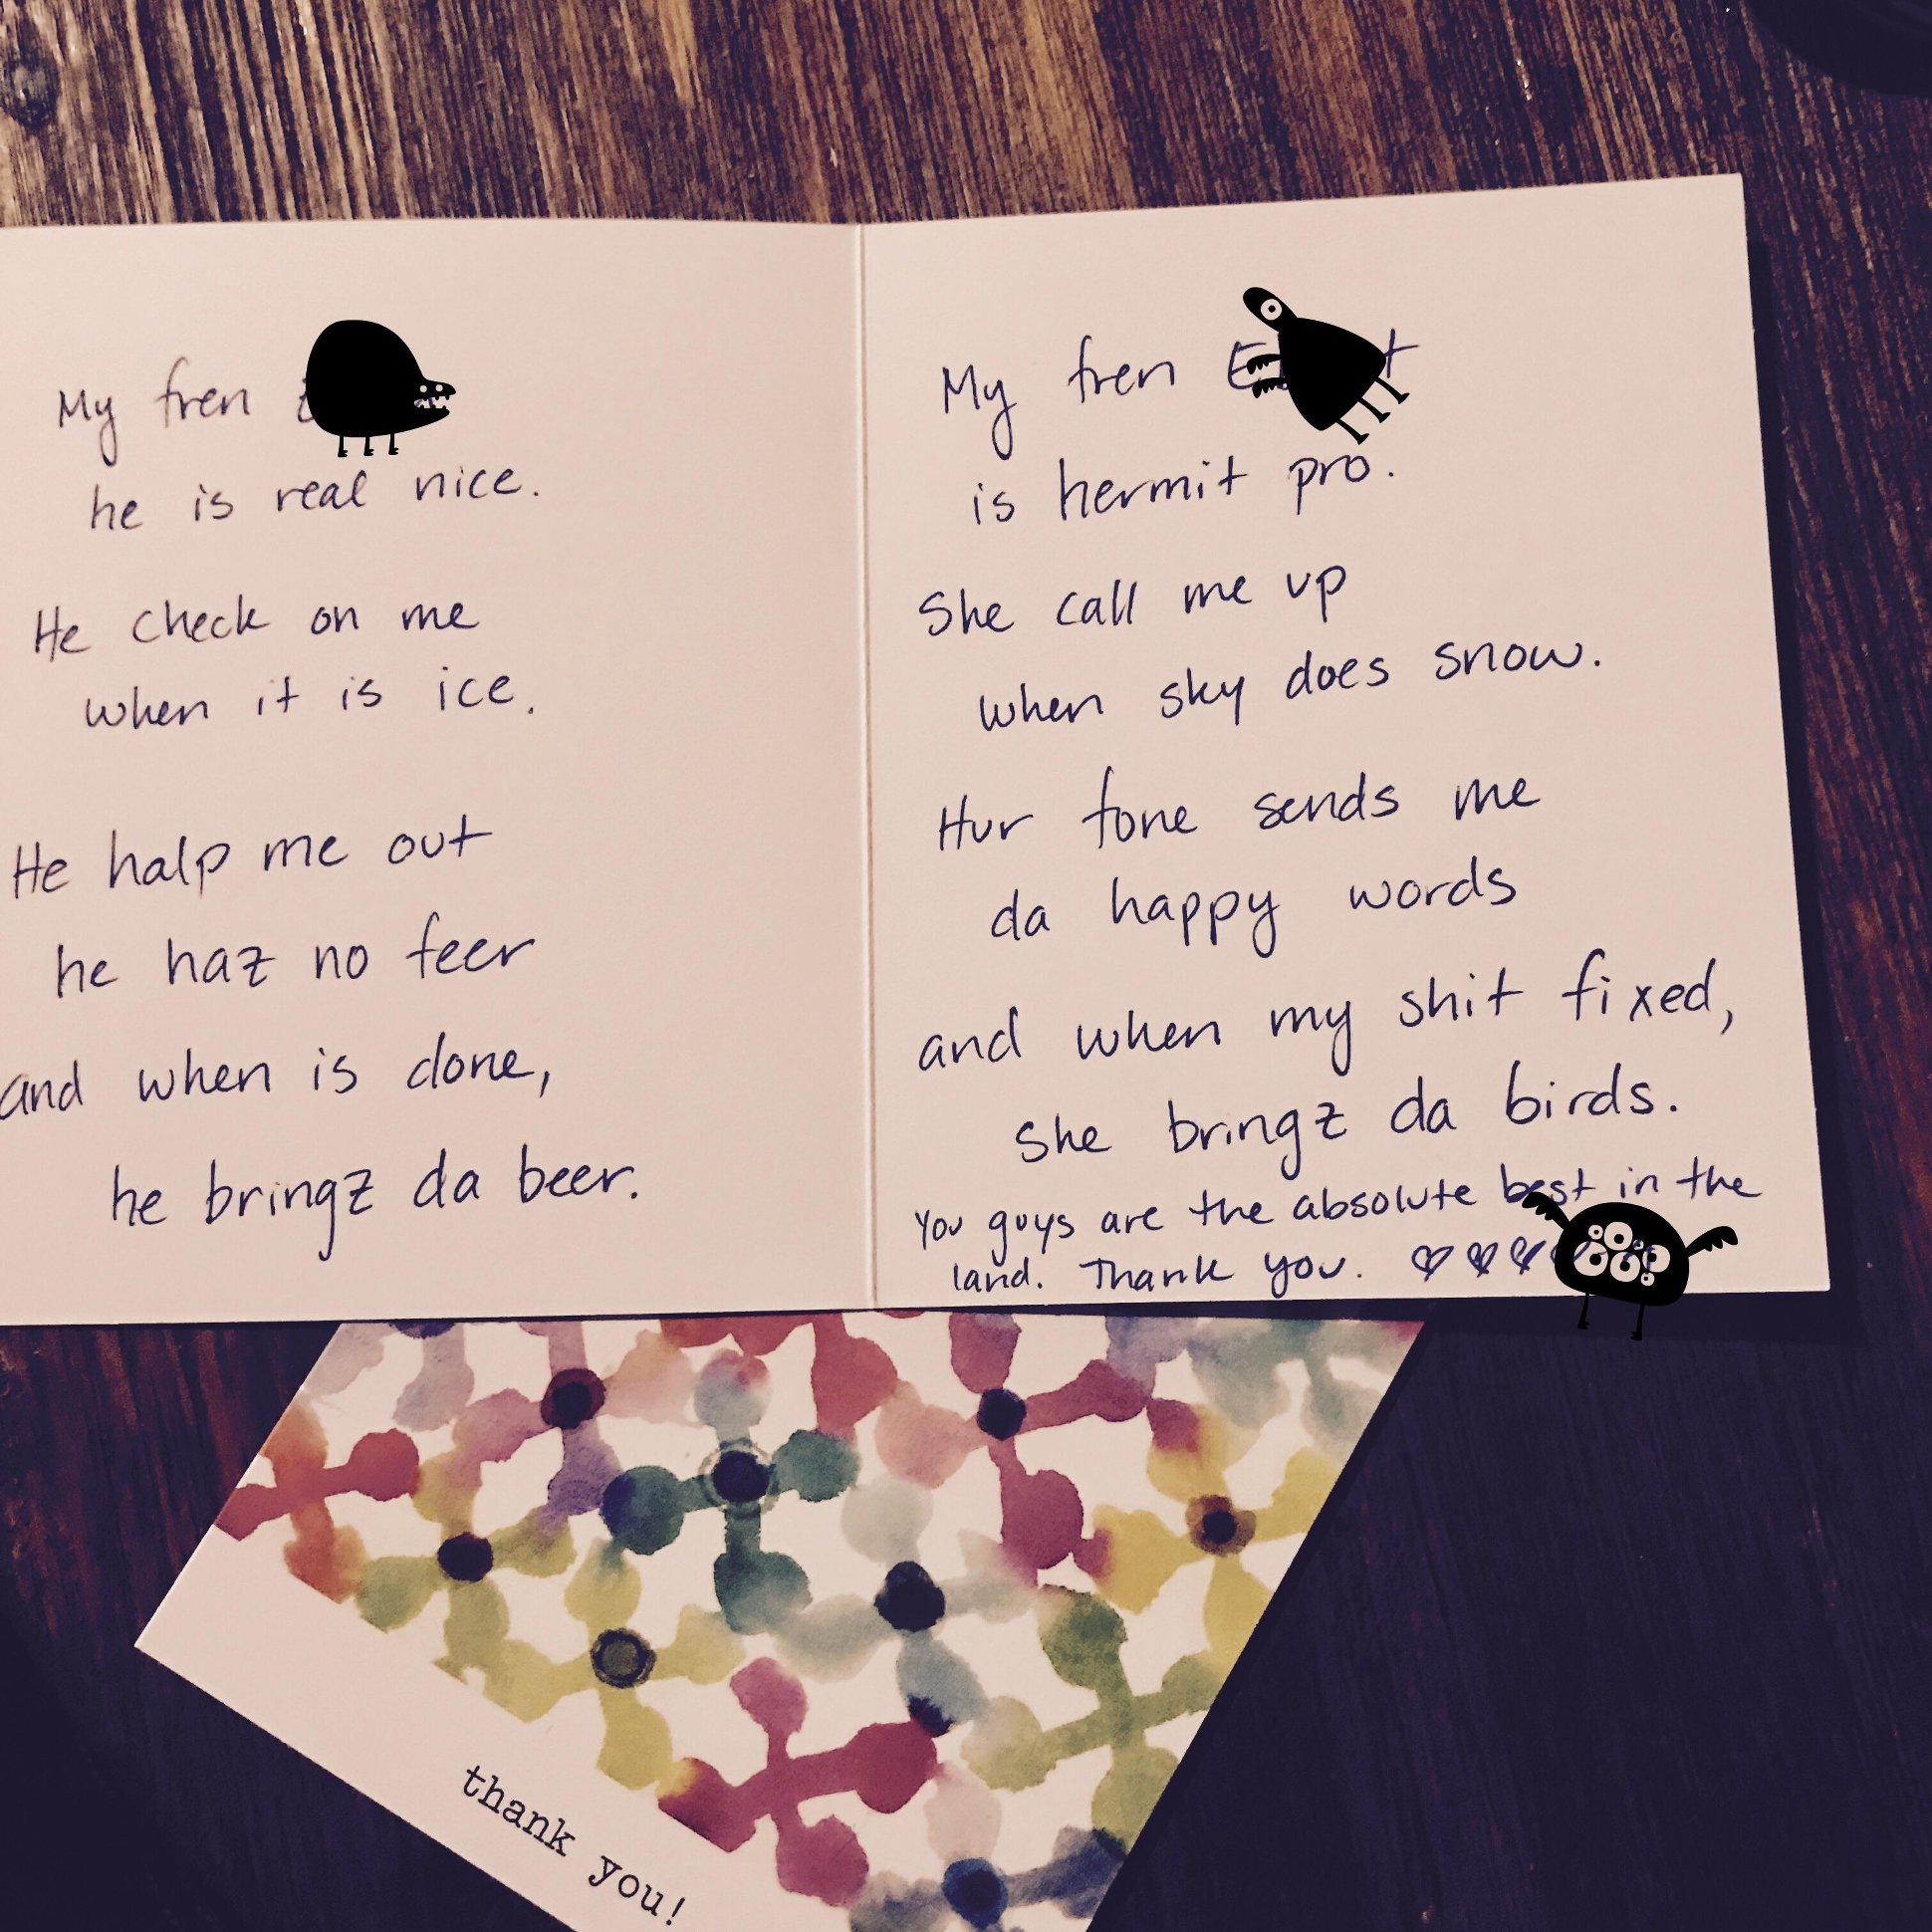 My fren
he is real nice.
He check on me
when it is ice.
He halp me out
he haz no feer
and when is done,
he bringz da beer.
My fren
is hermit pro.
She call me up
when sky does snow.
Hur fone sends me
da happy words
and when my shit fixed,
She bringz da birds.
You guys are the absolute best in the
land. Thank you. ♡♡♡
thank you!